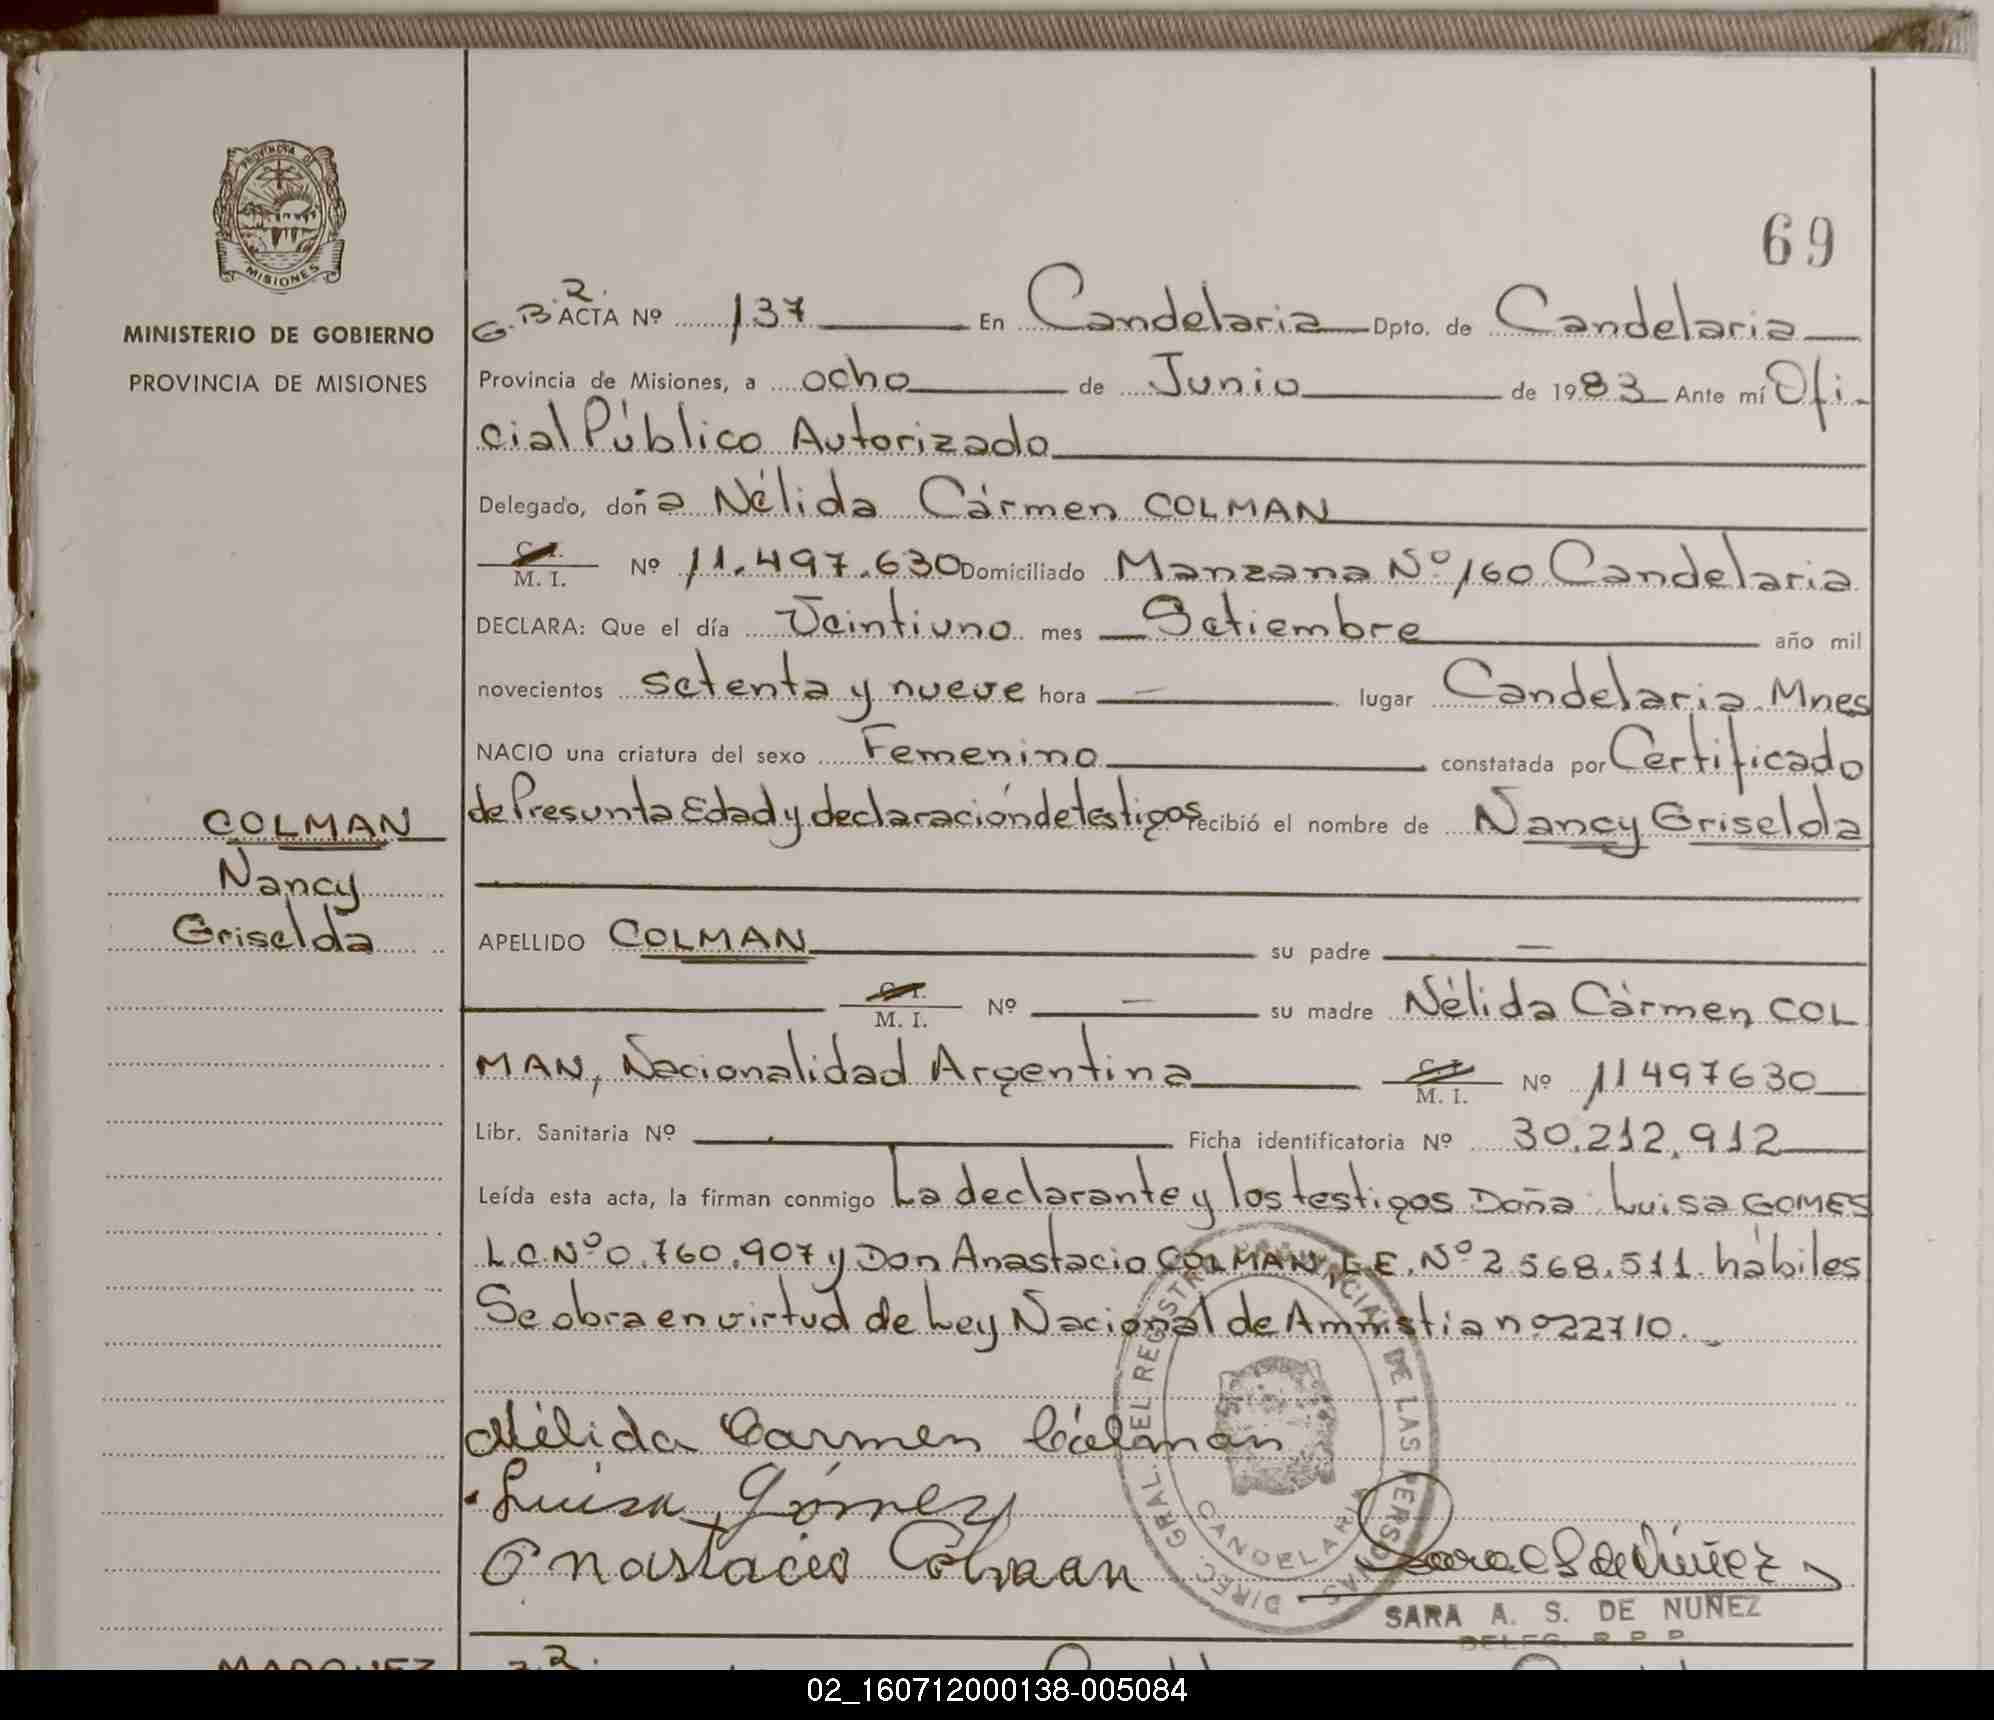 PROVINCIA DE
MISIONES
MINISTERIO DE GOBIERNO
PROVINCIA DE MISIONES
69
G.B.R. ACTA Nº 137 En Candelaria Dpto. de Candelaria
Provincia de Misiones, a ocho de Junio de 1983 Ante mí Ofi-
cial Público Autorizado
Delegado, doña Nélida Cármen COLMAN
C. I. M. I. Nº 11.497.630 Domiciliado Manzana Nº 160 Candelaria
DECLARA: Que el día Veintiuno mes Setiembre año mil
novecientos setenta y nueve hora — lugar Candelaria Mnes
NACIO una criatura del sexo Femenino constatada por Certificado
de Presunta Edad y declaración de testigos recibió el nombre de Nancy Griselda
COLMAN
Nancy
Griselda
APELLIDO COLMAN su padre —
C. I. M. I. Nº — su madre Nélida Cármen COL
MAN, Nacionalidad Argentina C. I. M. I. Nº 11497630
Libr. Sanitaria Nº Ficha identificatoria Nº 30.212.912
Leída esta acta, la firman conmigo La declarante y los testigos Doña Luisa GOMES
L.C. Nº 0.760.907 y Don Anastacio COLMAN, L.E. Nº 2568.511 hábiles
Se obra en virtud de Ley Nacional de Amnistia nº 22710.
Nélida Carmen Cólman
Luisa Gómez
Anastacio Colman
DIREC. GRAL. DEL REGISTRO PROVINCIAL DE LAS PERSONAS
CANDELARIA
Sara S de Núñez
SARA A. S. DE NUÑEZ
DELEG. R. P. P.
MARQUEZ
02_160712000138-005084